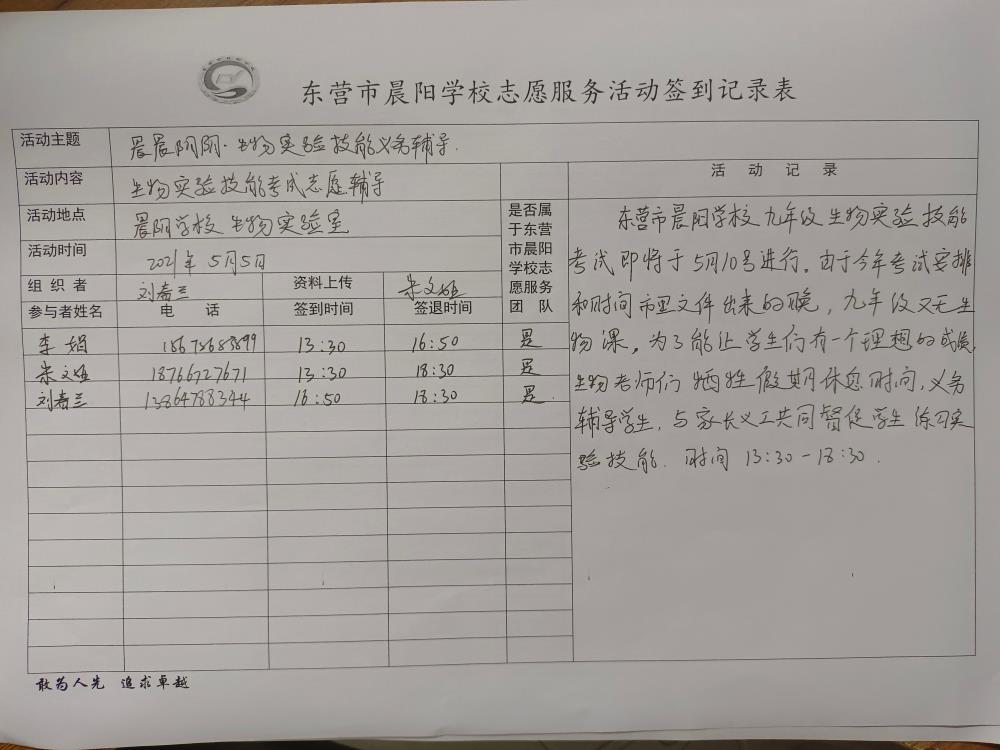 东营市晨阳学校志愿服务活动签到记录表
活动主题 晨晨阳阳·生物实验技能义务辅导.
活动内容 生物实验技能考试志愿辅导
活动地点 晨阳学校生物实验室
活动时间 2021年5月5日
组织者 刘春兰 资料上传 朱文姐
参与者姓名 电话 签到时间 签退时间 是否属于东营市晨阳学校志愿服务团队
李娟 13:30 16:50 是
18766727671 13:30 18:30 是
刘春兰 13864788344 16:50 18:30 是
活动记录
东营市晨阳学校九年级生物实验技能
考试即将于5月10号进行。由于今年考试安排
和时间市里文件出来的晚，九年级又无生
物课，为了能让学生们有一个理想的成绩，
生物老师们牺牲假期休息时间，义务
辅导学生，与家长义工共同督促学生练习实
验技能. 时间13:30-18:30.
敢为人先 追求卓越